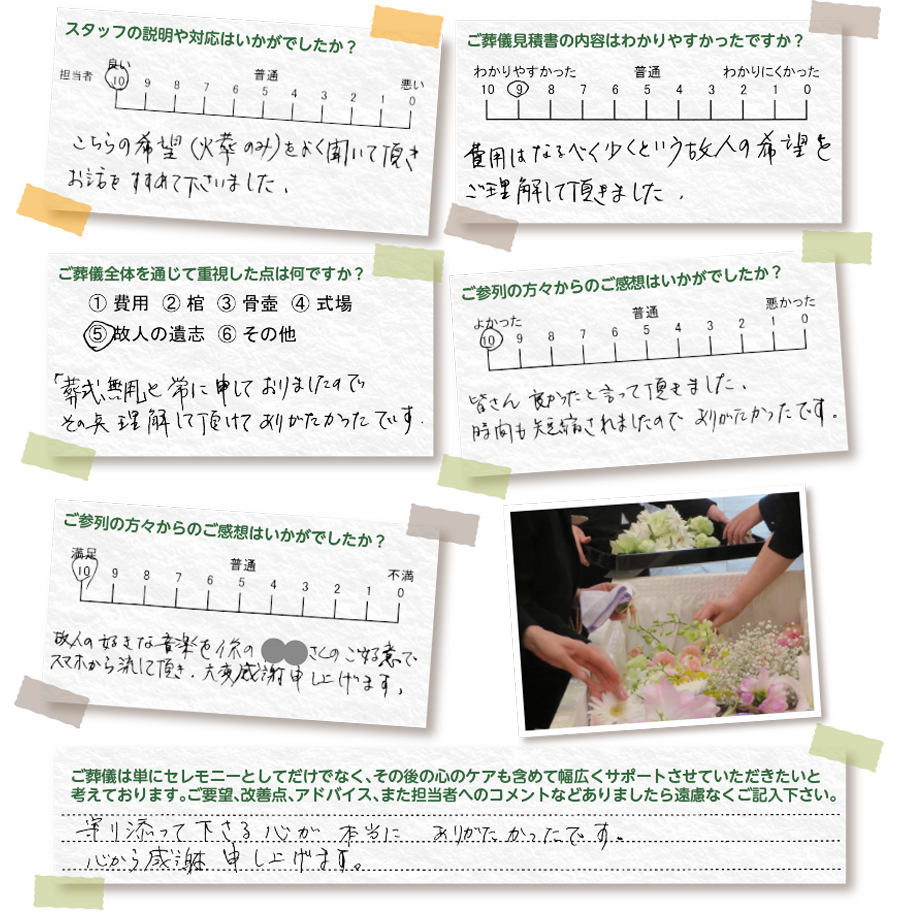 スタッフの説明や対応はいかがでしたか？
良い 普通 悪い
担当者 10 9 8 7 6 5 4 3 2 1 0
こちらの希望(火葬のみ)をよく聞いて頂き
お話をすすめて下さいました.
ご葬儀見積書の内容はわかりやすかったですか？
わかりやすかった 普通 わかりにくかった
10 9 8 7 6 5 4 3 2 1 0
費用はなるべく少くという故人の希望を
ご理解して頂きました.
ご葬儀全体を通じて重視した点は何ですか？
① 費用 ② 棺 ③ 骨壺 ④ 式場
⑤ 故人の遺志 ⑥ その他
「葬式無用」と常に申しておりましたので
その点理解して頂けてありがたかったです.
ご参列の方々からのご感想はいかがでしたか？
よかった 普通 悪かった
10 9 8 7 6 5 4 3 2 1 0
皆さん良かったと言って頂きました、
時間も短縮されましたのでありがたかったです。
ご参列の方々からのご感想はいかがでしたか？
満足 普通 不満
10 9 8 7 6 5 4 3 2 1 0
故人の好きな音楽を係の さんのご好意で
スマホから流して頂き、大変感謝申し上げます。
ご葬儀は単にセレモニーとしてだけでなく、その後の心のケアも含めて幅広くサポートさせていただきたいと
考えております。ご要望、改善点、アドバイス、また担当者へのコメントなどありましたら遠慮なくご記入下さい。
寄り添って下さる心が 本当に ありがたかったです。
心から感謝 申し上げます。